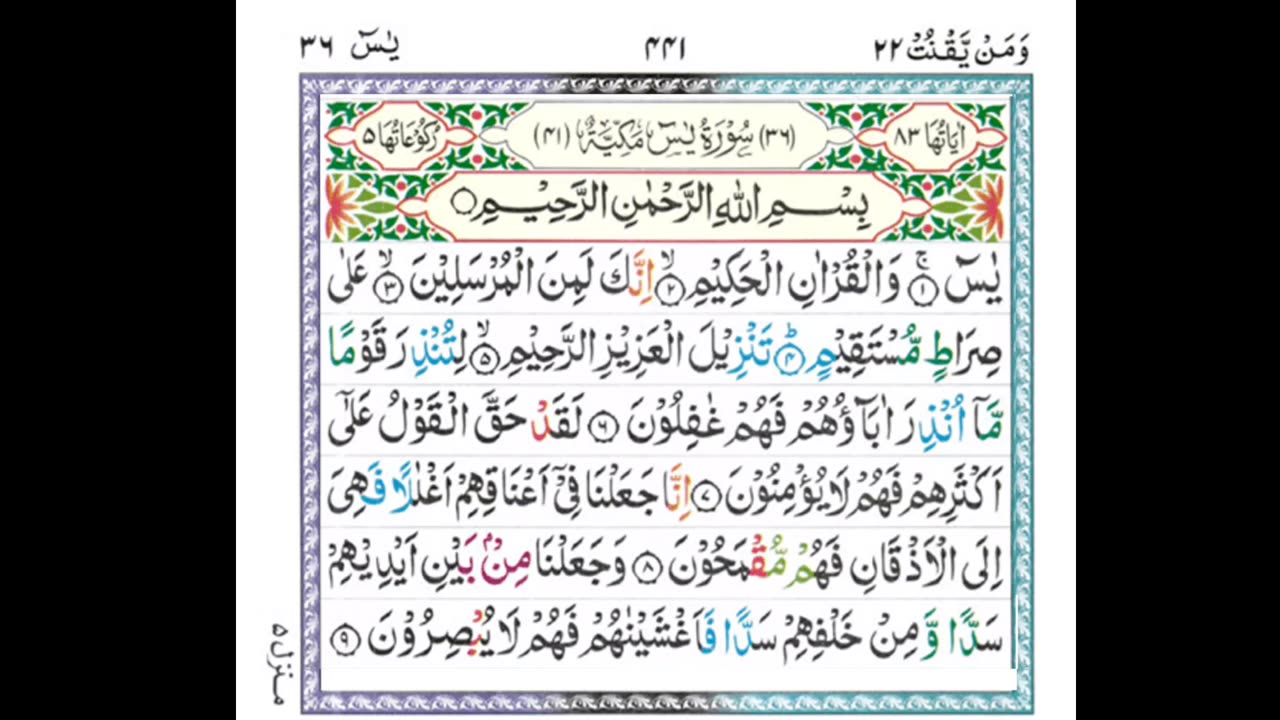 وَمَنْ يَّقْنُتْ ٢٢ ٤٤١ يٰسٓ ٣٦
اٰيَاتُهَا ٨٣ (٣٦) سُوْرَةُ يٰسٓ مَكِّيَّةٌ (٤١) رُكُوْعَاتُهَا ٥
بِسْمِ اللّٰهِ الرَّحْمٰنِ الرَّحِيْمِ
يٰسٓ ۚ﴿١﴾ وَالْقُرْاٰنِ الْحَكِيْمِ ۙ﴿٢﴾ اِنَّكَ لَمِنَ الْمُرْسَلِيْنَ ۙ﴿٣﴾ عَلٰى
صِرَاطٍ مُّسْتَقِيْمٍ ؕ﴿٤﴾ تَنْزِيْلَ الْعَزِيْزِ الرَّحِيْمِ ۙ﴿٥﴾ لِتُنْذِرَ قَوْمًا
مَّاۤ اُنْذِرَ اٰبَآؤُهُمْ فَهُمْ غٰفِلُوْنَ ﴿٦﴾ لَقَدْ حَقَّ الْقَوْلُ عَلٰۤى
اَكْثَرِهِمْ فَهُمْ لَا يُؤْمِنُوْنَ ﴿٧﴾ اِنَّا جَعَلْنَا فِيْۤ اَعْنَاقِهِمْ اَغْلٰلًا فَهِىَ
اِلَى الْاَذْقَانِ فَهُمْ مُّقْمَحُوْنَ ﴿٨﴾ وَجَعَلْنَا مِنْۢ بَيْنِ اَيْدِيْهِمْ
سَدًّا وَّمِنْ خَلْفِهِمْ سَدًّا فَاَغْشَيْنٰهُمْ فَهُمْ لَا يُبْصِرُوْنَ ﴿٩﴾
منزل ٥